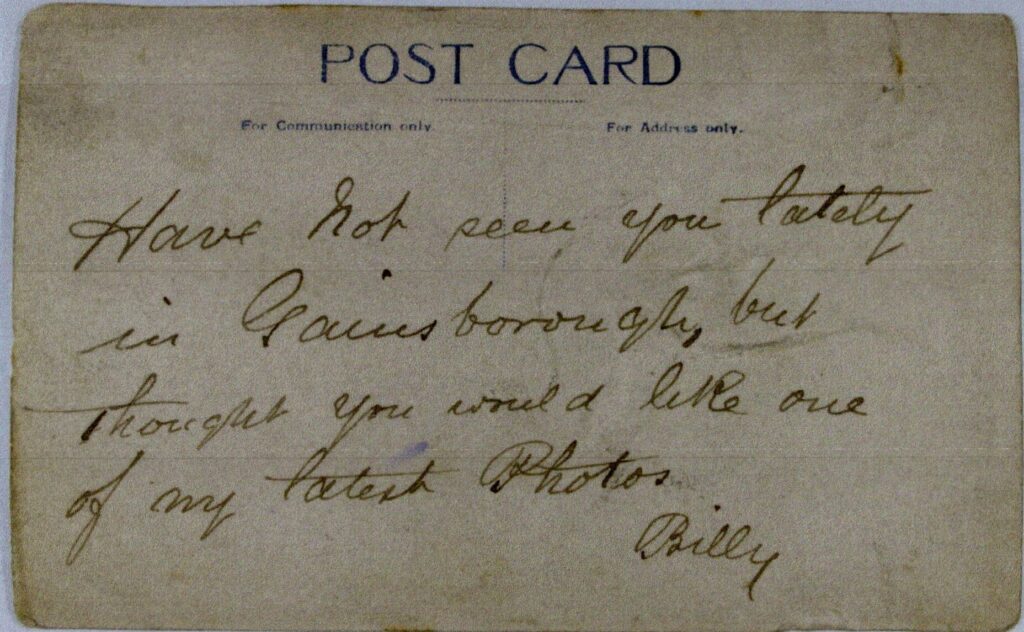 POST CARD
For Communication only.
For Address only.
Have Not seen you lately
in Gainsborough, but
thought you would like one
of my latest Photos
Billy